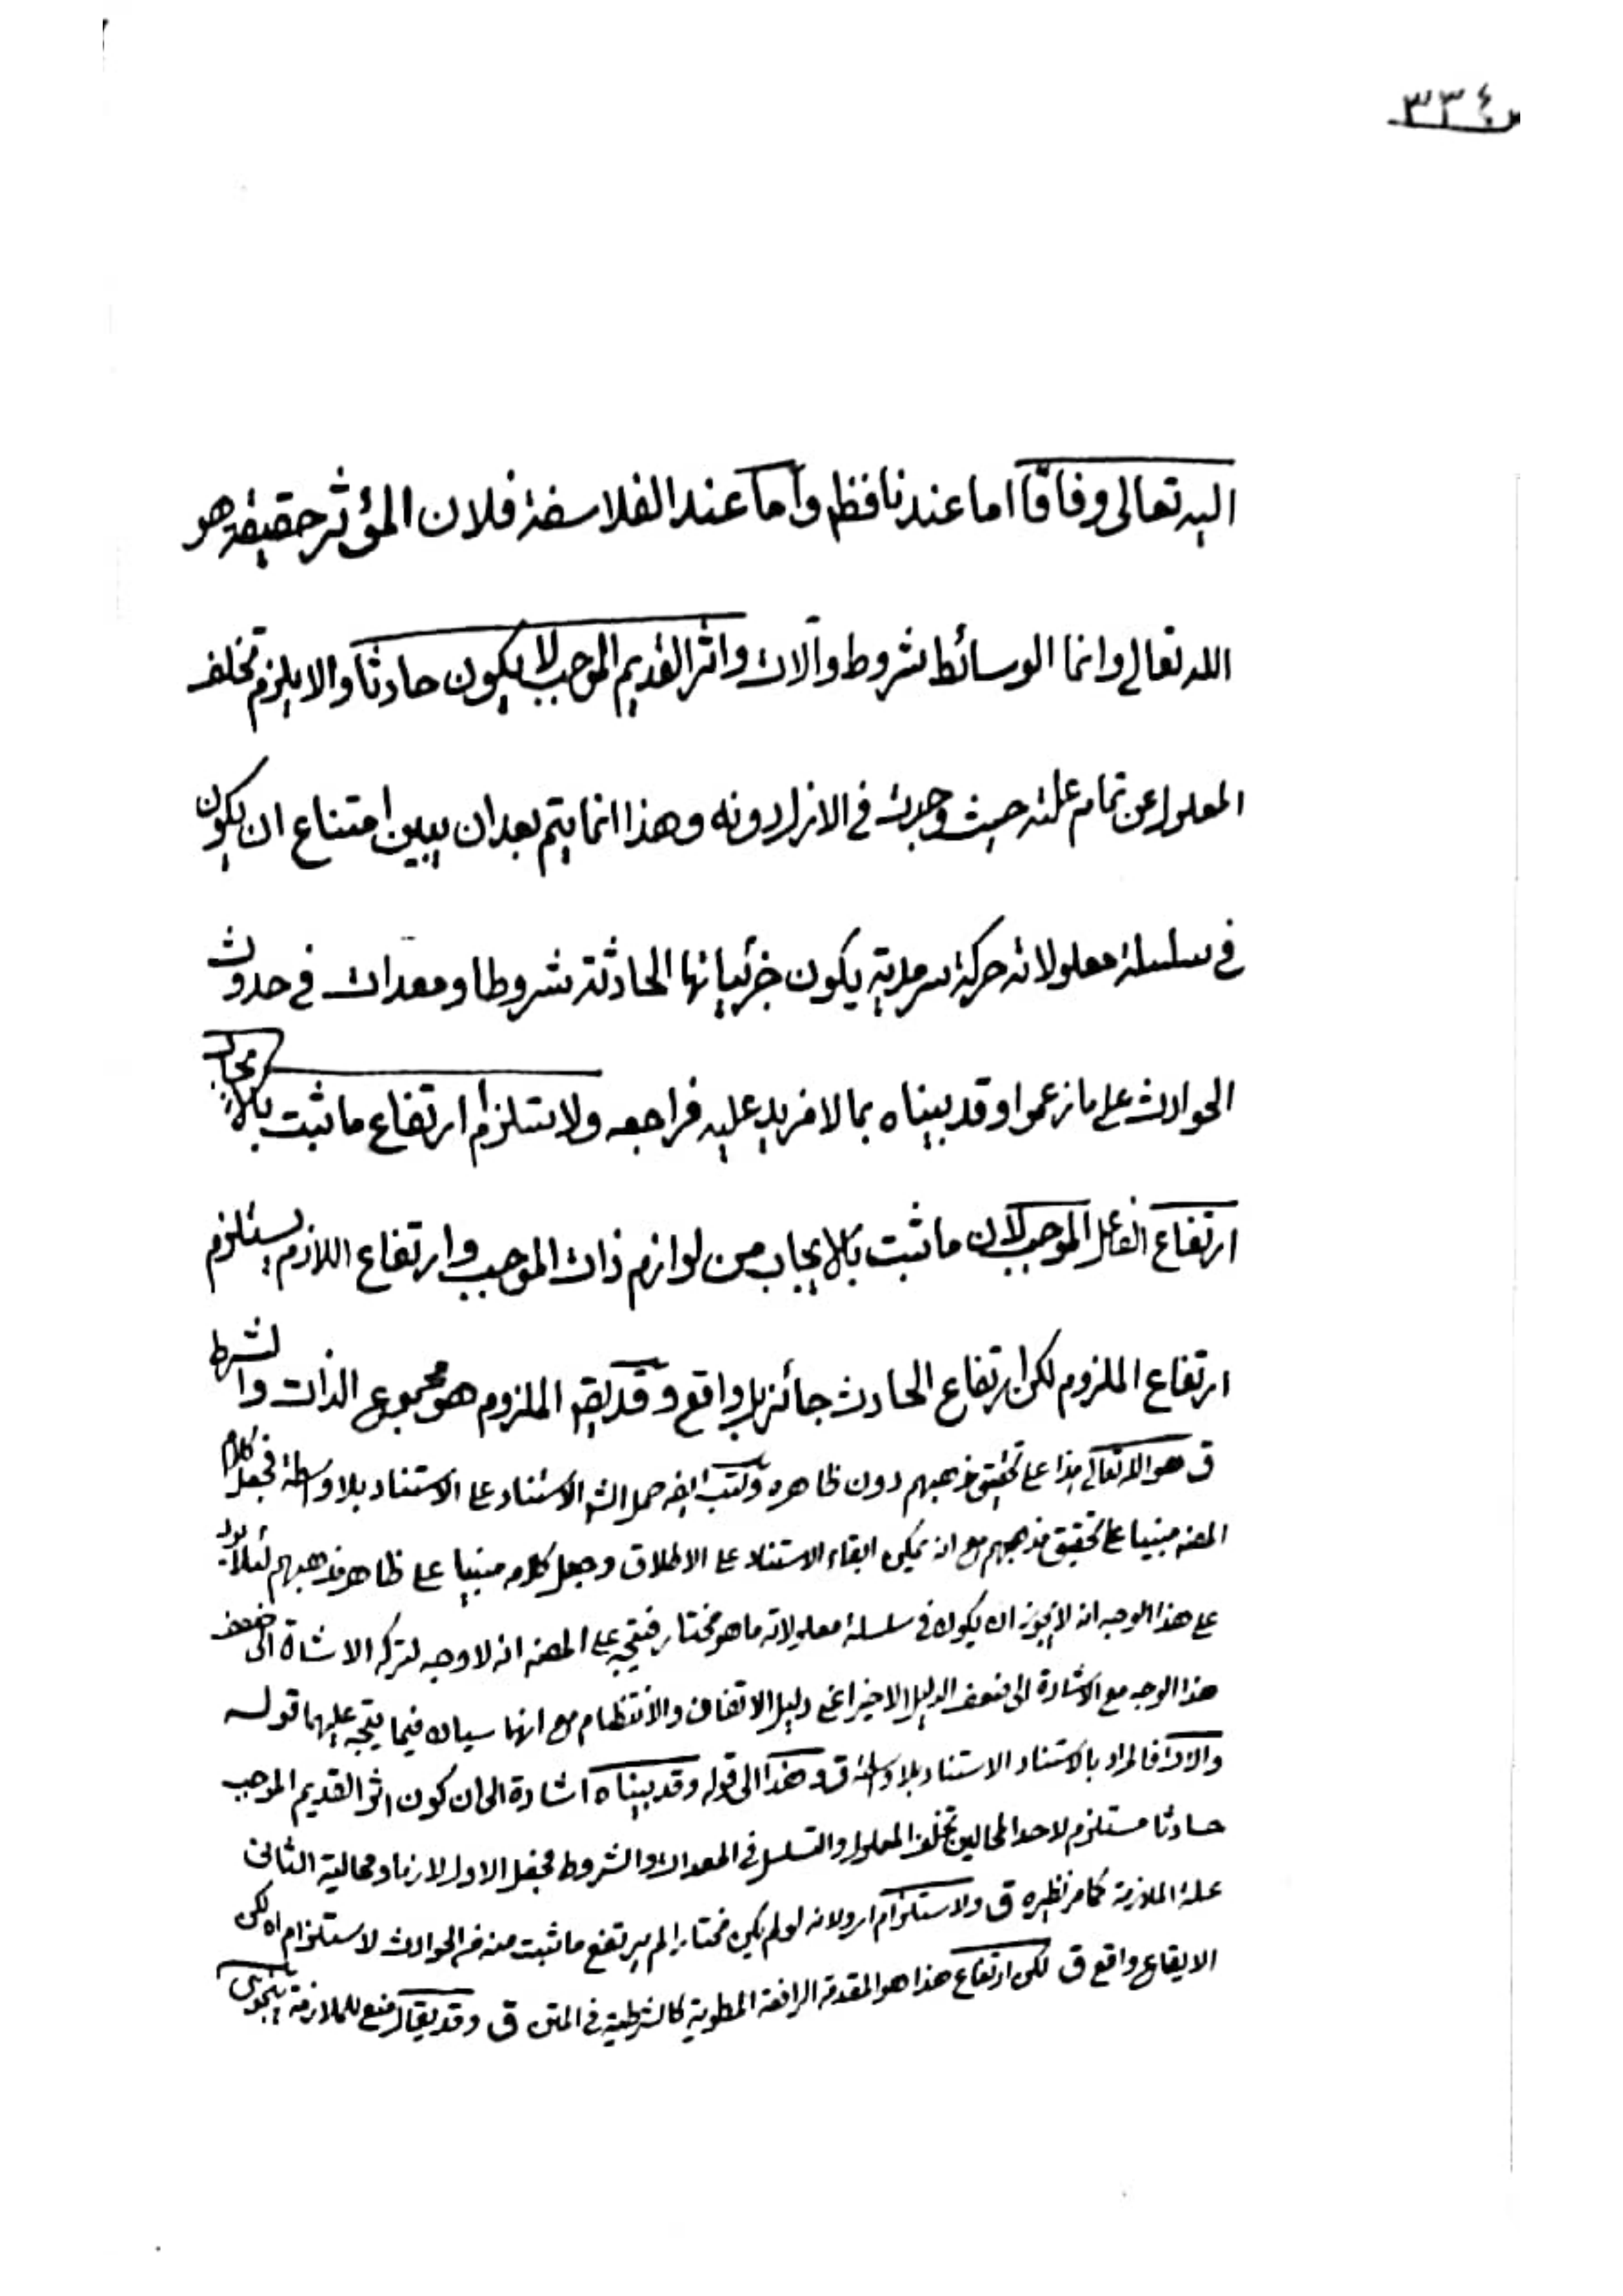 ٣٣٤
اليه تعالى وفاقا اما عندنا فظ واما عند الفلاسفة فلان المؤثر حقيقة هو
الله تعالى وانما الوسائط شروط وآلات واثر القديم الموجب لا يكون حادثا والا يلزم تخلف
المعلول عن تمام علته حيث وجدت في الازل دونه وهذا انما يتم بعد ان يبين امتناع ان يكون
في سلسلة معلولاته حركة سرمدية يكون جزئياتها الحادثة شروطا ومعدات في حدوث
الحوادث على ما زعموا وقد بيناه بما لا مزيد عليه فراجعه ولاستلزام ارتفاع ما ثبت بالايجاب
ارتفاع الفاعل الموجب لان ما ثبت بالايجاب من لوازم ذات الموجب وارتفاع اللازم يستلزم
ارتفاع الملزوم لكن ارتفاع الحادث جائز بل واقع وقد يقم الملزوم هو مجموع الذات والشرط
ق هو الله تعالى هذا على تحقيق مذهبهم دون ظاهره وكتب ايضه حمل الش الاستناد على الاستناد بلا واسطة فجعل كلام
المصنه مبنيا على تحقيق مذهبهم مع انه يمكن ابقاء الاستناد على الاطلاق وجعل كلامه مبنيا على ظاهر مذهبهم لئلا يرد
على هذا الوجه انه لا يجوز ان يكون في سلسلة معلولاته ما هو مختار فيتجه على المصنه انه لا وجه لتركه الاشارة الى ضعف
هذا الوجه مع الاشارة الى ضعف الدليل الاخير اعني دليل الاتقان والانتظام مع انهما سيان فيما يتجه عليهما قوله
والا فالمراد بالاستناد الاستناد بلا واسطة ق وهذا الى قوله وقد بيناه اشارة الى ان كون اثر القديم الموجب
حادثا مستلزم لاحد المحالين تخلف المعلول والتسلسل في المعدات والشروط فجعل الاول لازما ومحالية الثاني
علة الملازمة كما مر نظيره ق ولاستلزام ار ولانه لو لم يكن مختارا لم يرتفع ما ثبت منه من الحوادث لاستلزام اه لكن
الايقاع واقع ق لكن ارتفاع هذا هو المقدمة الرافعة المطوية كالشرطية في المتن ق وقد يقال منع للملازمة بتجويز